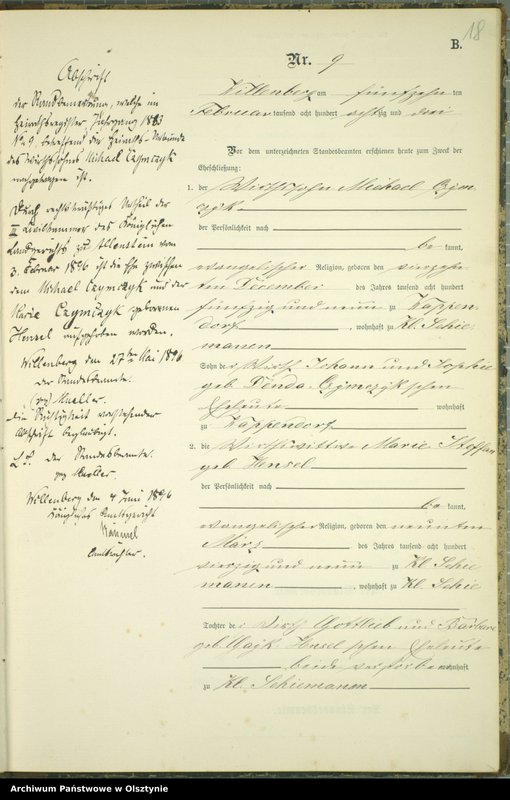 18
B.
Nr. 9
Willenberg am fünfzehn ten
Februar tausend acht hundert achtzig und drei
Vor dem unterzeichneten Standesbeamten erschienen heute zum Zweck der
Eheschließung:
1. der Wirthssohn Michael Czym
czyk
der Persönlichkeit nach
be kannt,
evangelischer Religion, geboren den vierzehn
ten December des Jahres tausend acht hundert
fünfzig und neun zu Wappen
dorf, wohnhaft zu Kl. Schie
manen
Sohn der Wirth Johann und Sophie
geb. Denda Czymczyk'schen
Eheleute wohnhaft
zu Wappendorf
2. die Wirthswittwe Marie Steffan
geb. Hensel
der Persönlichkeit nach
be kannt,
evangelischer Religion, geboren den neunten
März des Jahres tausend acht hundert
vierzig und neun zu Kl. Schie
manen, wohnhaft zu Kl. Schie
manen
Tochter der Wirth Gottlieb und Barbara
geb. Gajk Hensel'schen Eheleute
beide verstorben wohnhaft
zu Kl. Schiemanen
Abschrift
der Randbemerkung, welche im
Heirathsregister Jahrgang 1883
No 9, betreffend die Heiraths-Urkunde
des Wirthssohnes Michael Czymczyk
eingetragen ist.
Durch rechtskräftiges Urtheil der
II Civilkammer des Königlichen
Landgerichts zu Allenstein vom
3. Februar 1896 ist die Ehe zwischen
dem Michael Czymczyk und der
Marie Czymczyk geborenen
Hensel aufgehoben worden.
Willenberg den 27ten Mai 1896
Der Standesbeamte.
(gez) Mueller.
Die Richtigkeit vorstehender
Abschrift beglaubigt.
L.S. Der Standesbeamte.
gez Mueller.
Willenberg den 4 Juni 1896
Königliches Amtsgericht
Amtsrichter.
Archiwum Państwowe w Olsztynie